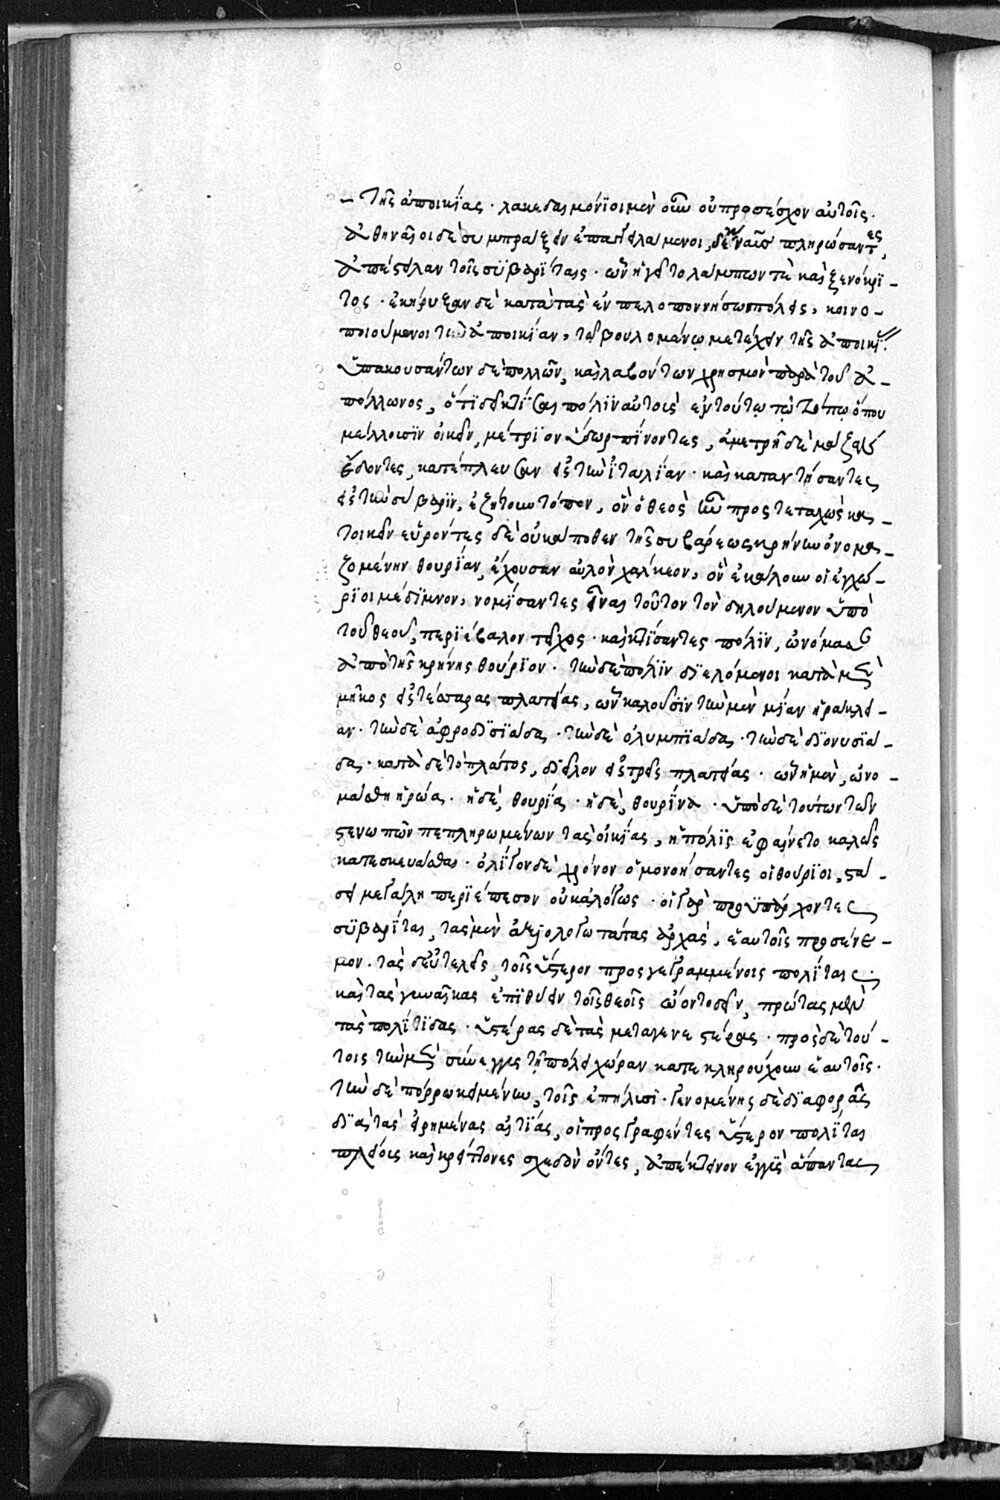 – τῆς ἀποικίας · λακεδαιμόνϊοι μὲν οὖν οὐ προσέσχον αὐτοῖς ·
ἀθηναῖοι δὲ συμπράξειν ἐπαγγειλάμενοι, δέκα ναῦς πληρώσαντες,
ἀπέστειλαν τοῖς συβαρίταις · ὧν ἡγεῖτο λάμπων τὲ καὶ ξενόκρι
τος · ἐκήρυξαν δὲ κατὰ τὰς ἐν πελοποννήσω πόλεις, κοινο-
ποιούμενοι τὴν ἀποικίαν, τῷ βουλομένῳ μετέχειν τῆς ἀποικί//
ὑπακουσάντων δὲ πολλῶν, καὶ λαβόντων χρησμὸν παρὰ τοῦ ἀ-
πόλλωνος, ὅτι δεῖ κτίσαι πόλιν αὐτοὺς ἐν τούτῳ τῷ τόπῳ ὅπου
μέλλουσιν οἰκεῖν, μέτριον ὕδωρ πίνοντες, ἀμετρὶ δὲ μάζαν
ἔδοντες, κατέπλευσαν εἰς τὴν ἰταλίαν · καὶ καταντήσαντες
εἰς τὴν σύβαριν, ἐζήτουν τόπον, ὃν ὁ θεὸς ἦν προστεταχὼς κα-
τοικεῖν εὑρόντες δὲ οὐκ ἄποθεν τῆς συβάρεως κρήνην ὀνομα-
ζομένην θουρίαν, ἔχουσαν αὐλὸν χάλκεον, ὃν ἐκάλουν οἱ ἐγχώ-
ριοι μέδιμνον, νομίσαντες εἶναι τοῦτον τὸν δηλούμενον ὑπὸ
τοῦ θεοῦ, περιέβαλον τεῖχος · καὶ κτίσαντες πόλιν, ὠνόμασαν
ἀπὸ τῆς κρήνης θούριον · τὴν δὲ πόλιν διελόμενοι κατὰ μὲν
μῆκος εἰς τέσσαρας πλατείας, ὧν καλοῦσιν τὴν μὲν μίαν ἡρακλεί-
αν · τὴν δὲ ἀφροδισιάδα · τὴν δὲ ὀλυμπιάδα · τὴν δὲ διονυσιά-
δα · κατὰ δὲ τὸ πλάτος, διεῖλον εἰς τρεῖς πλατείας · ὧν ἡ μὲν, ὠνο-
μάσθη ἡρώα · ἡ δὲ, θουρία · ἡ δὲ, θουρίνα · ὑπὸ δὲ τούτων τῶν
στενωπῶν πεπληρωμένων τὰς οἰκίας, ἡ πόλις ἐφαίνετο καλῶς
κατεσκευάσθαι · ὀλίγον δὲ χρόνον ὁμονοήσαντες οἱ θούριοι, στά-
σει μεγάλῃ περιέπεσον οὐκ ἀλόγως · οἱ γὰρ προϋπάρχοντες
συβαρίται, τὰς μὲν ἀξιολογωτάτας ἀρχὰς, ἑαυτοῖς προσένε-
μον · τὰς δ' εὐτελεῖς, τοῖς ὕστερον προσγεγραμμένοις πολίταις ·
καὶ τὰς γυναῖκας ἐπιθύειν τοῖς θεοῖς ᾤοντο δεῖν, πρώτας μὲν
τὰς πολίτιδας · ὑστέρας δὲ τὰς μεταγενεστέρας · πρὸς δὲ τού-
τοις τὴν μὲν σύνεγγυς τῇ πόλει χώραν κατεκληρούχουν ἑαυτοῖς ·
τὴν δὲ πόρρω κειμένην, τοῖς ἐπήλυσι · γενομένης δὲ διαφορᾶς
διὰ τὰς εἰρημένας αἰτίας, οἱ προσγραφέντες ὕστερον πολίται
πλείους καὶ κρείττονες σχεδὸν ὄντες, ἀπέκτεινον ἐγγὺς ἅπαντας